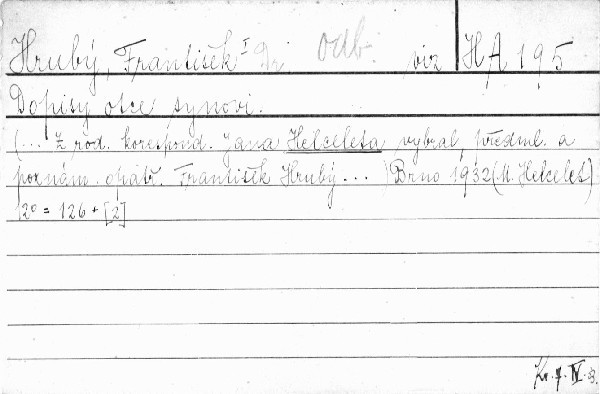 Hrubý, František I Dr. odb. viz HA 195
Dopisy otce synovi.
(... Z rod. korespond. Jana Helceleta vybral, předml. a
poznám. opatř. František Hrubý ... ) Brno 1932 (M. Helcelet)
12° = 126 + [2]
Kr. 7. IV. 3.